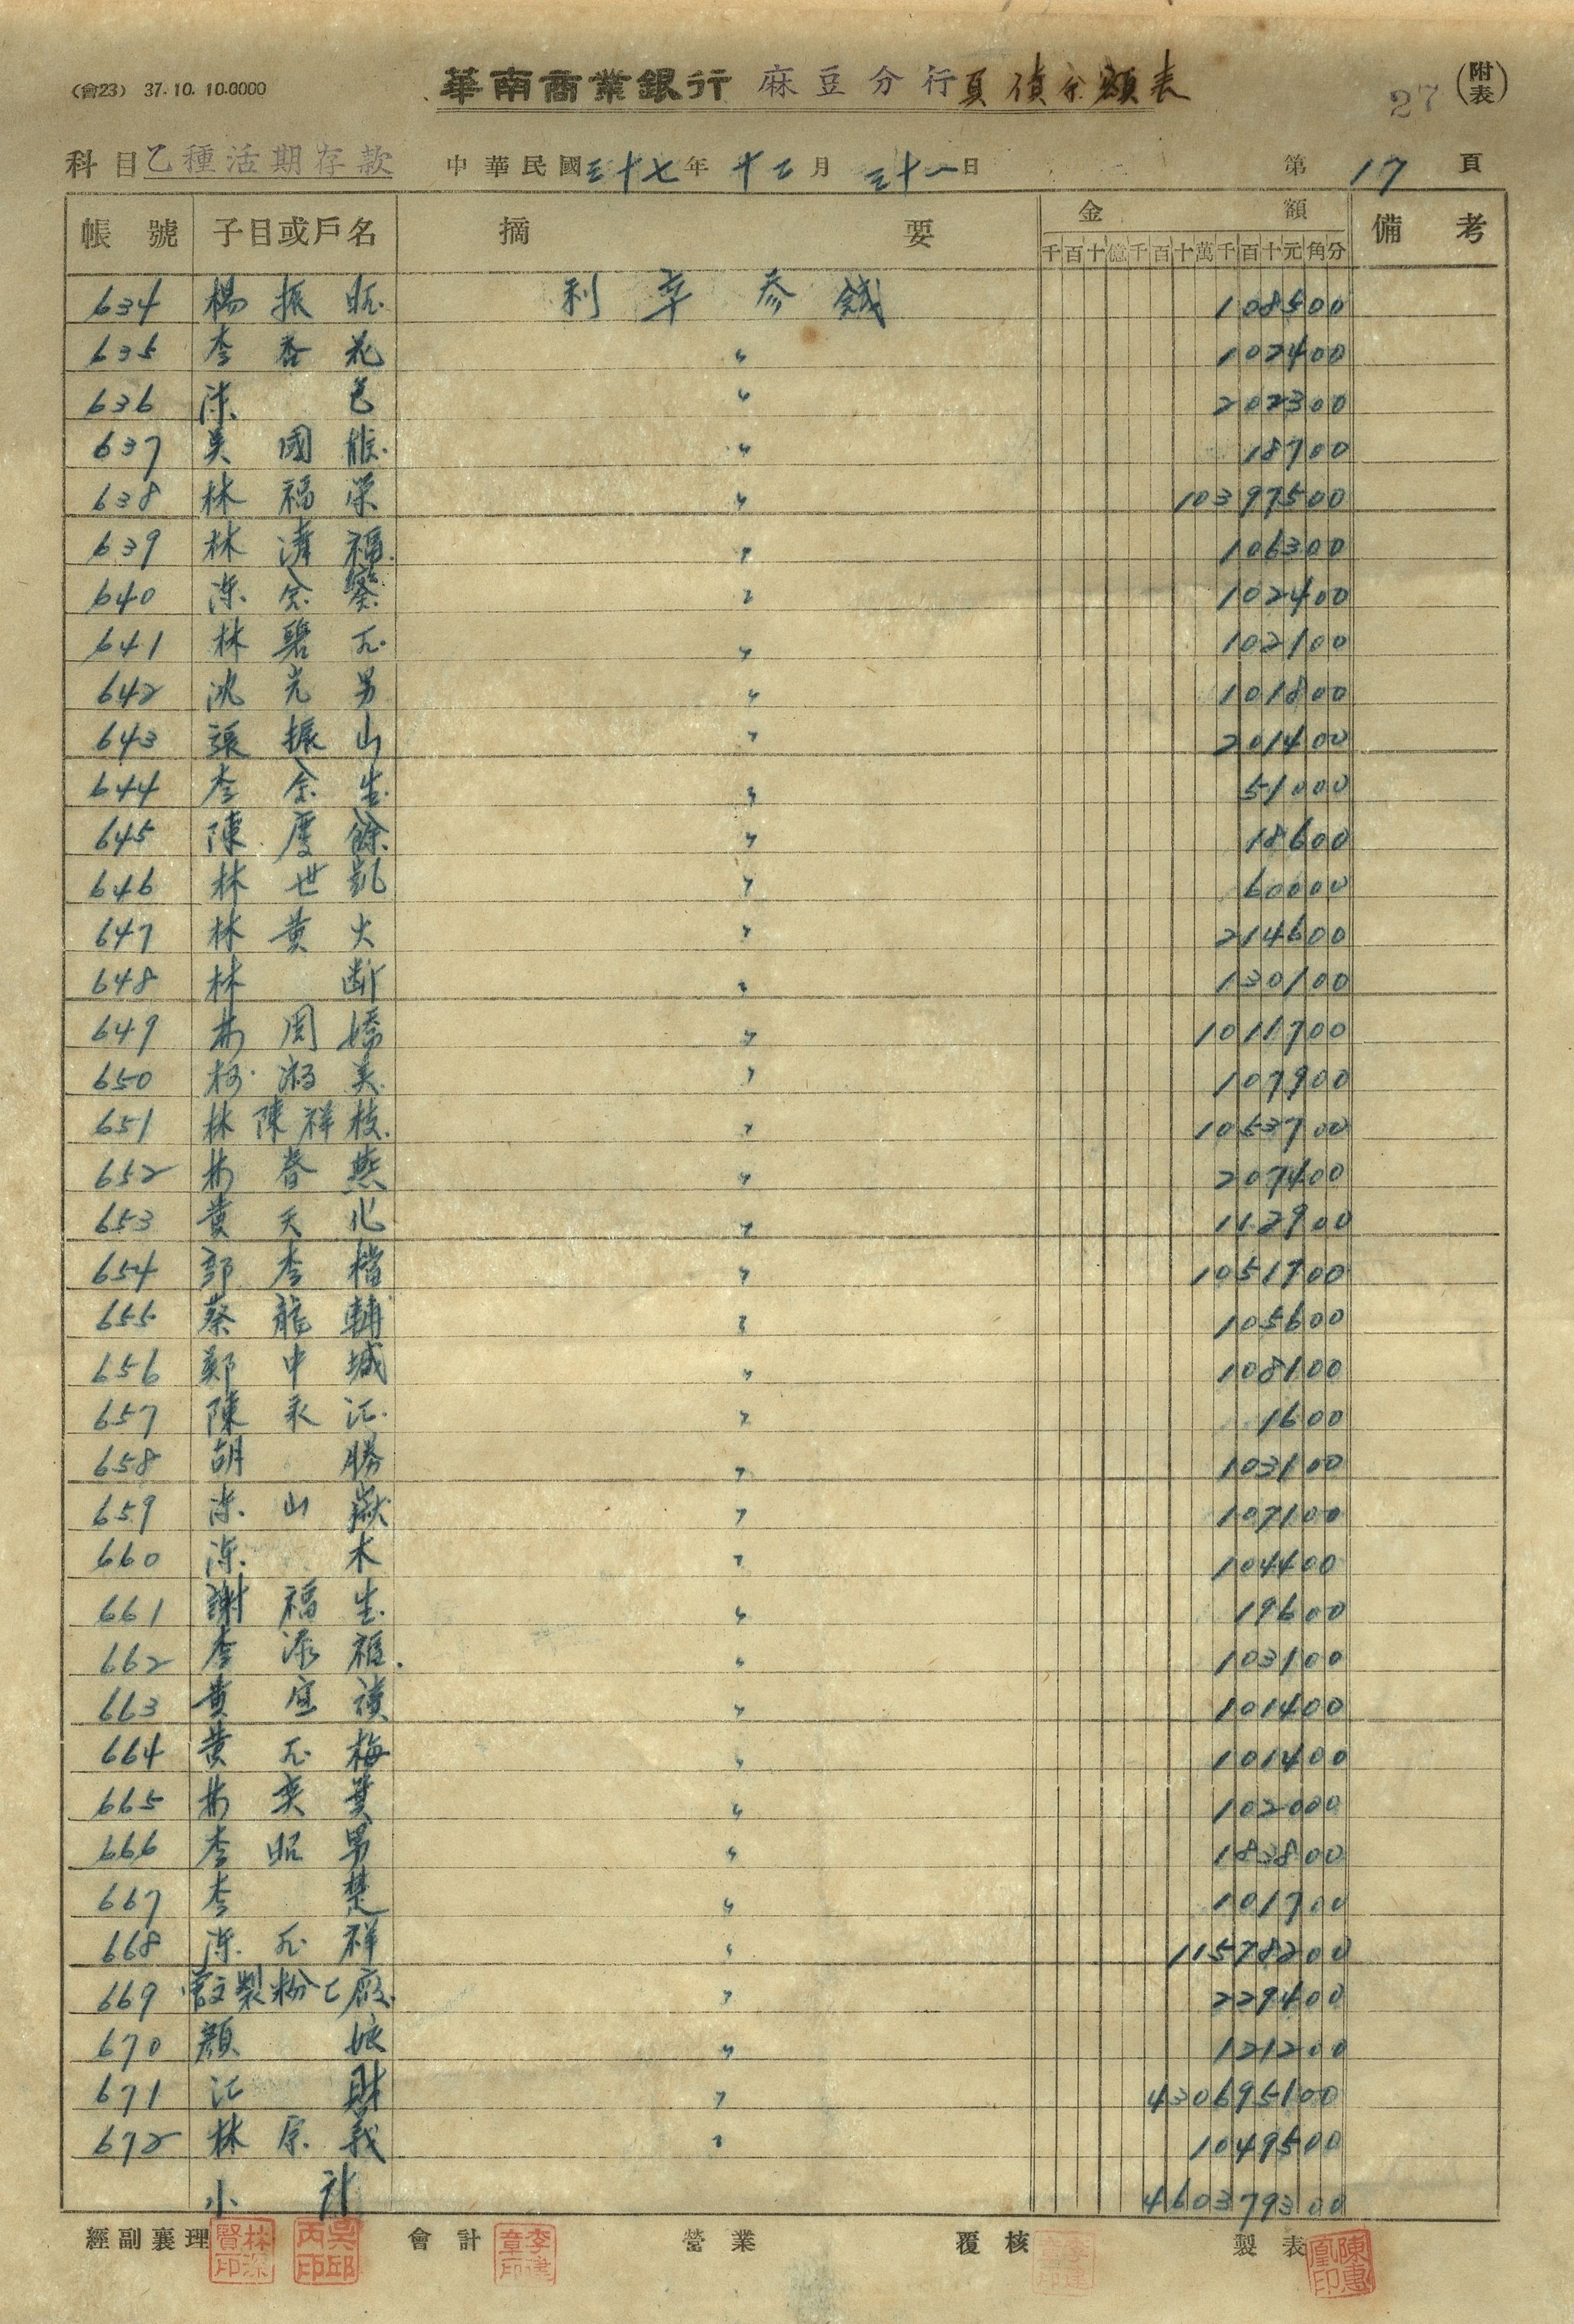 (會23) 37.10.10.0000 華南商業銀行 麻豆分行負債余額表 27 (附表)
科目 乙種活期存款 中華民國三十七年十二月三十一日 第17頁
帳號 子目或戶名 摘要 金額 備考
千百十億千百十萬千百十元角分
634 楊振 利率參 108500
635 李春花 〃 102400
636 陳色 〃 202300
637 吳國 〃 18700
638 林福榮 〃 10397500
639 林清福 〃 106300
640 陳金鑾 〃 102400
641 林碧 〃 102100
642 沈光男 〃 101800
643 張振山 〃 201400
644 李金生 〃 51000
645 陳慶餘 〃 18600
646 林世凱 〃 60000
647 林黃火 〃 214600
648 林斷 〃 130100
649 林周嬌 〃 1011700
650 柯淑美 〃 107900
651 林陳祥枝 〃 1053700
652 林春燕 〃 207400
653 黃天化 〃 112900
654 郭李檔 〃 1051700
655 蔡龍輔 〃 105600
656 鄭中城 〃 108100
657 陳永江 〃 1600
658 胡勝 〃 103100
659 陳山嶽 〃 107100
660 陳木 〃 104400
661 謝福生 〃 19600
662 李添福 〃 103100
663 黃宜 〃 101400
664 黃 梅 〃 101400
665 林 〃 102000
666 李昭男 〃 183800
667 李楚 〃 101700
668 陳 祥 〃 11578200
669 製粉工廠 〃 229400
670 顏娘 〃 121200
671 江財 〃 430695100
672 林原義 〃 1049500
小計 460379300
經副襄理 會計 營業 覆核 製表
林深賢印 吳邱丙印 李建章印 李建章印 陳惠凰印